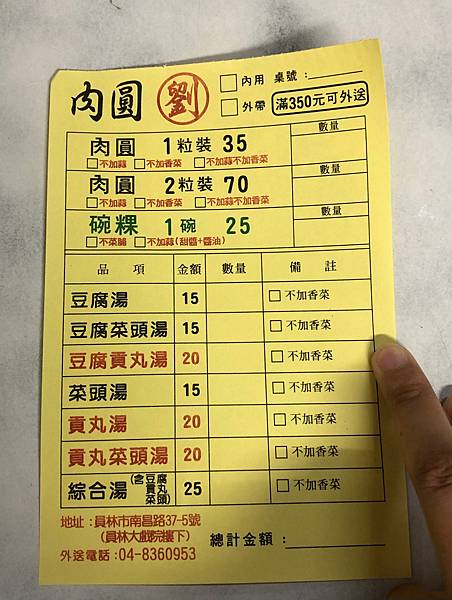 肉圓 劉 □內用 桌號：
□外帶 滿350元可外送
肉圓 1粒裝 35 數量
□不加蒜 □不加香菜 □不加蒜不加香菜
肉圓 2粒裝 70 數量
□不加蒜 □不加香菜 □不加蒜不加香菜
碗粿 1碗 25 數量
□不菜脯 □不加蒜(甜醬+醬油)
品項 金額 數量 備註
豆腐湯 15 □不加香菜
豆腐菜頭湯 15 □不加香菜
豆腐貢丸湯 20 □不加香菜
菜頭湯 15 □不加香菜
貢丸湯 20 □不加香菜
貢丸菜頭湯 20 □不加香菜
綜合湯(含豆腐貢丸菜頭) 25 □不加香菜
地址：員林市南昌路37-5號
(員林大戲院樓下)
外送電話：04-8360953 總計金額：